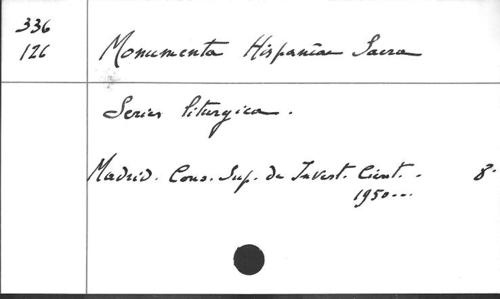 336
126
Monumenta Hispaniae Sacra
Series liturgica.
Madrid. Cons. Sup. de Invest. Cient. - 8º
1950---